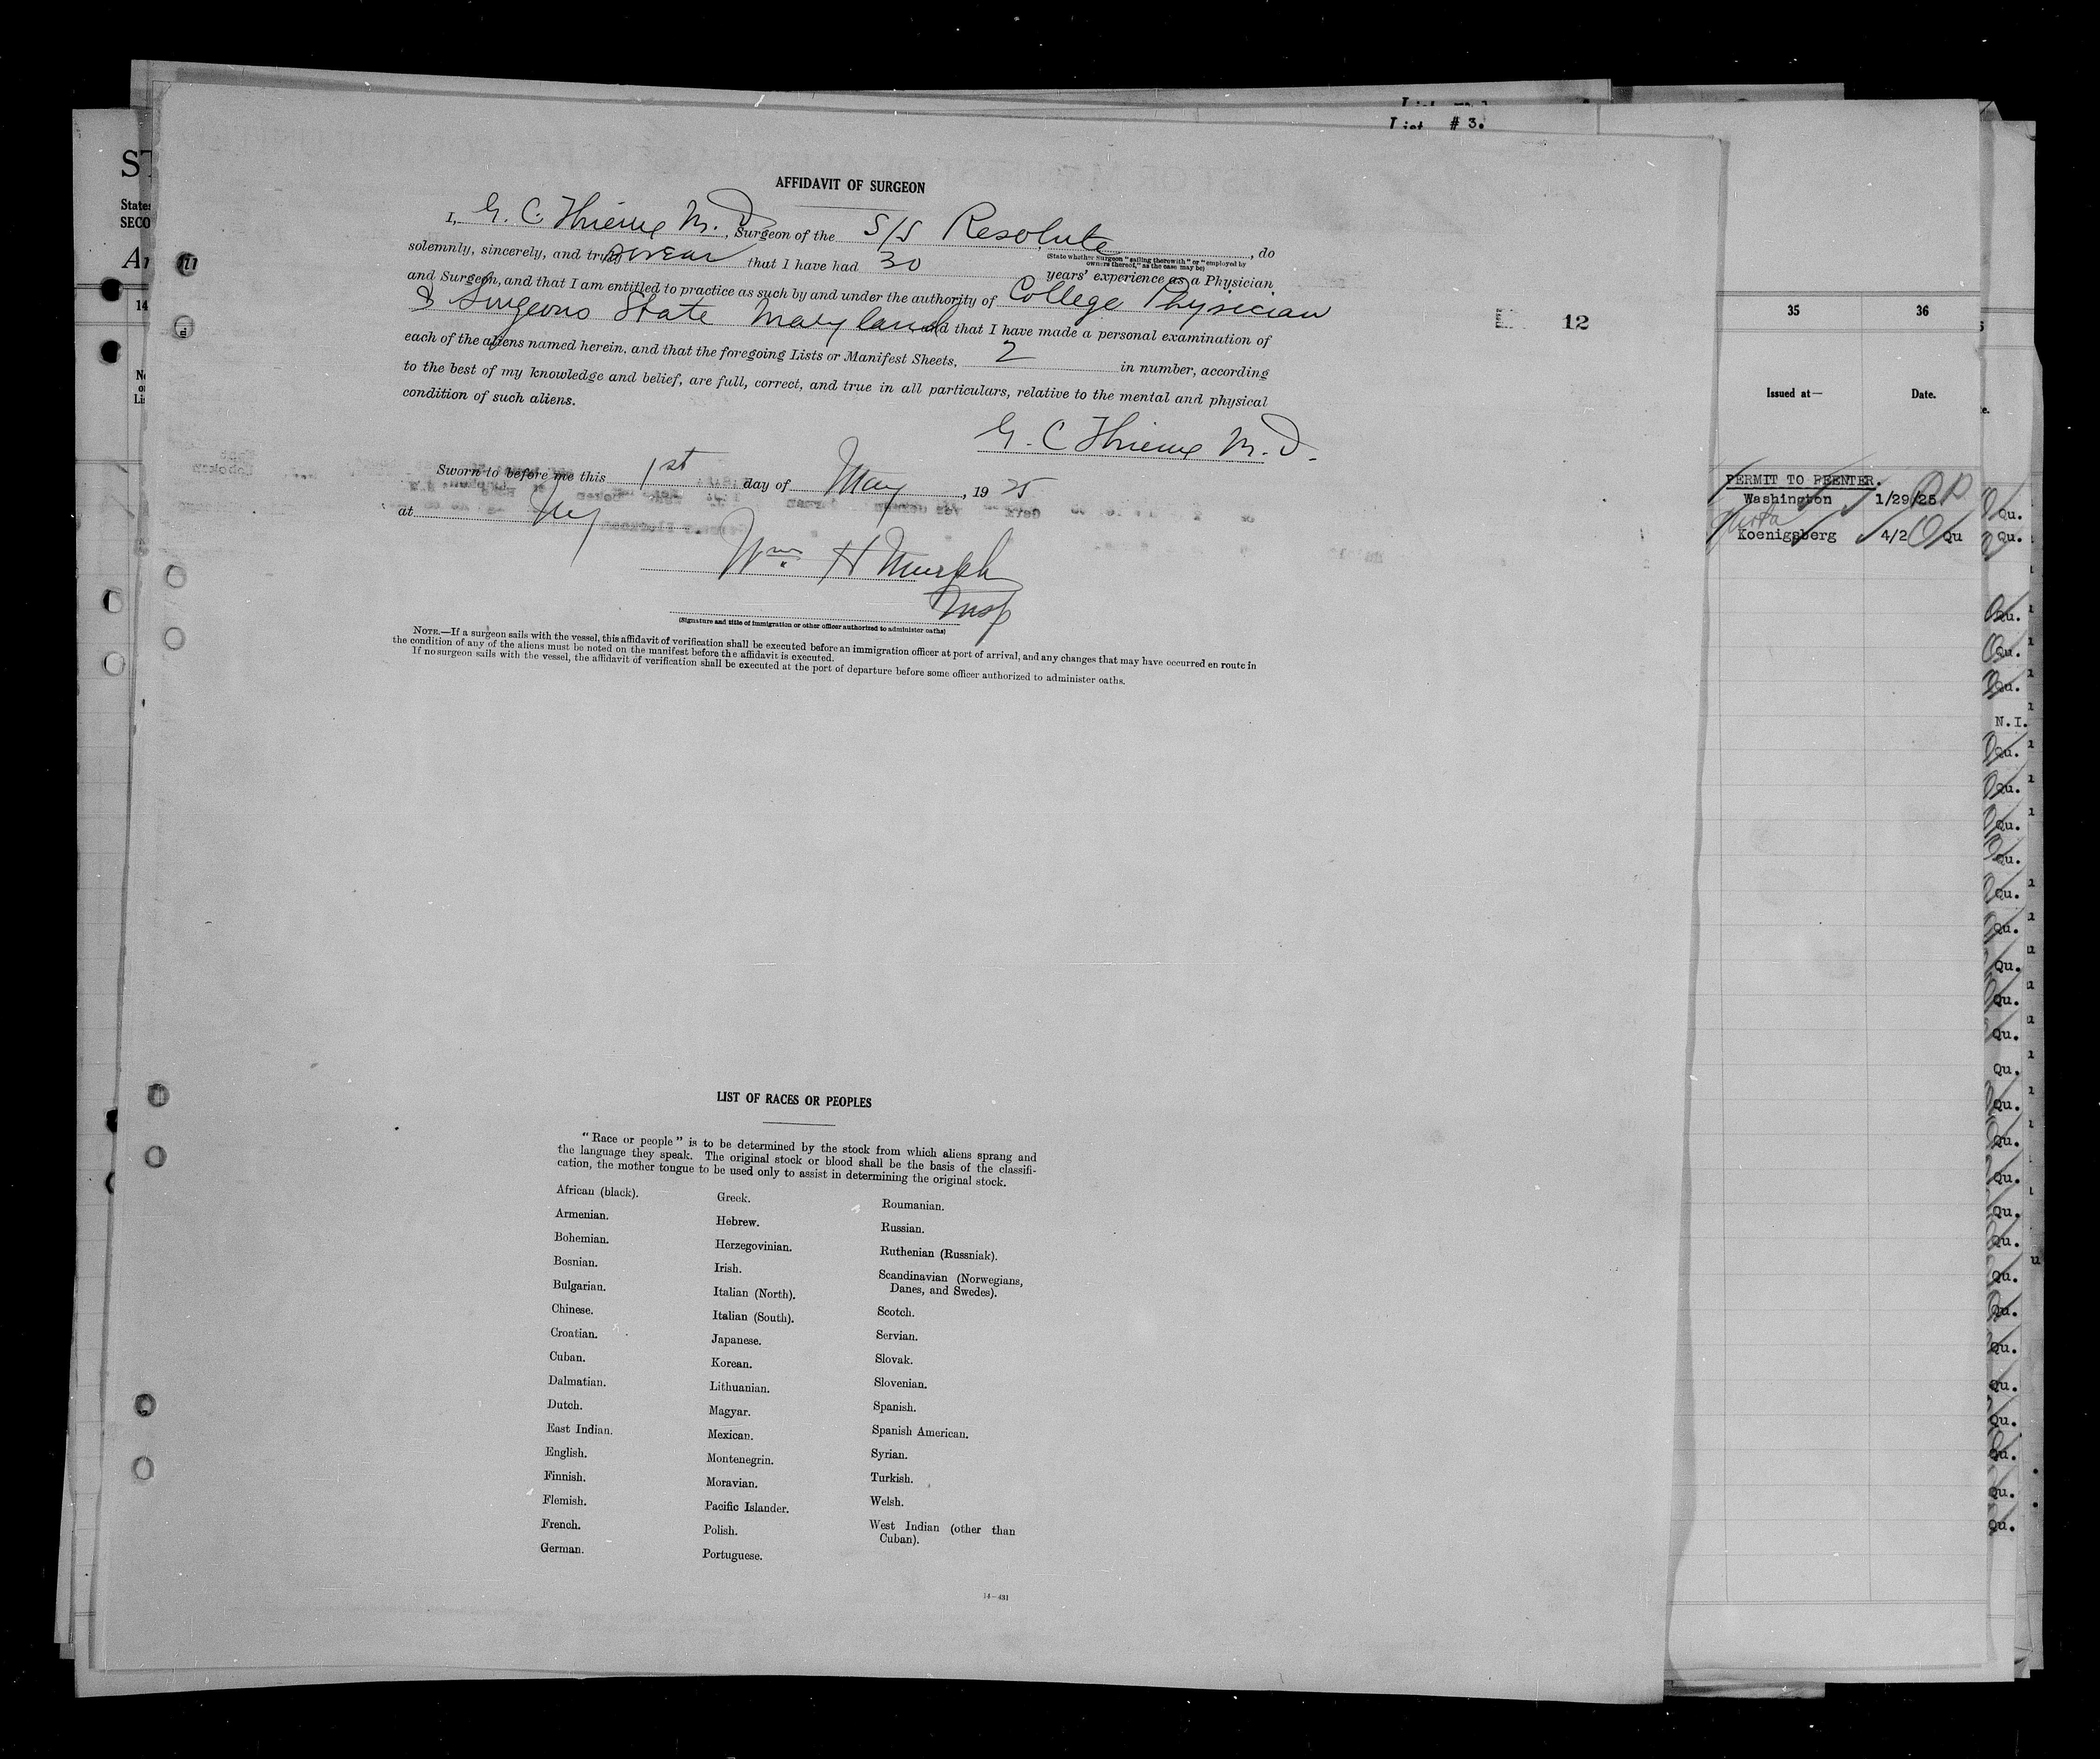 List # 3.
AFFIDAVIT OF SURGEON
I, G. C. Thieme M. D., Surgeon of the S/S Resolute, do
(State whether Surgeon "sailing therewith" or "employed by owners thereof," as the case may be)
solemnly, sincerely, and truly swear that I have had 30 years' experience as a Physician
and Surgeon, and that I am entitled to practice as such by and under the authority of College Physician
& Surgeons State Maryland and that I have made a personal examination of
each of the aliens named herein, and that the foregoing Lists or Manifest Sheets, 2 in number, according
to the best of my knowledge and belief, are full, correct, and true in all particulars, relative to the mental and physical
condition of such aliens.
G. C Thieme M. D.
Sworn to before me this 1st day of May, 1925
at NY
Wm. H Murphy
Insp
(Signature and title of immigration or other officer authorized to administer oaths)
NOTE.—If a surgeon sails with the vessel, this affidavit of verification shall be executed before an immigration officer at port of arrival, and any changes that may have occurred en route in
the condition of any of the aliens must be noted on the manifest before the affidavit is executed.
If no surgeon sails with the vessel, the affidavit of verification shall be executed at the port of departure before some officer authorized to administer oaths.
12
LIST OF RACES OR PEOPLES
"Race or people" is to be determined by the stock from which aliens sprang and
the language they speak. The original stock or blood shall be the basis of the classifi-
cation, the mother tongue to be used only to assist in determining the original stock.
African (black).
Armenian.
Bohemian.
Bosnian.
Bulgarian.
Chinese.
Croatian.
Cuban.
Dalmatian.
Dutch.
East Indian.
English.
Finnish.
Flemish.
French.
German.
Greek.
Hebrew.
Herzegovinian.
Irish.
Italian (North).
Italian (South).
Japanese.
Korean.
Lithuanian.
Magyar.
Mexican.
Montenegrin.
Moravian.
Pacific Islander.
Polish.
Portuguese.
Roumanian.
Russian.
Ruthenian (Russniak).
Scandinavian (Norwegians,
Danes, and Swedes).
Scotch.
Servian.
Slovak.
Slovenian.
Spanish.
Spanish American.
Syrian.
Turkish.
Welsh.
West Indian (other than
Cuban).
14—431
35 36
Issued at— Date.
PERMIT TO REENTER.
Washington 1/29/25
Koenigsberg 4/2 Qu
Qu.
Qu.
Qu.
Qu.
Qu.
N.I.
Qu.
Qu.
Qu.
Qu.
Qu.
Qu.
Qu.
Qu.
Qu.
Qu.
Qu.
Qu.
Qu.
Qu.
Qu.
Qu.
Qu.
Qu.
Qu.
Qu.
Qu.
Qu.
Qu.